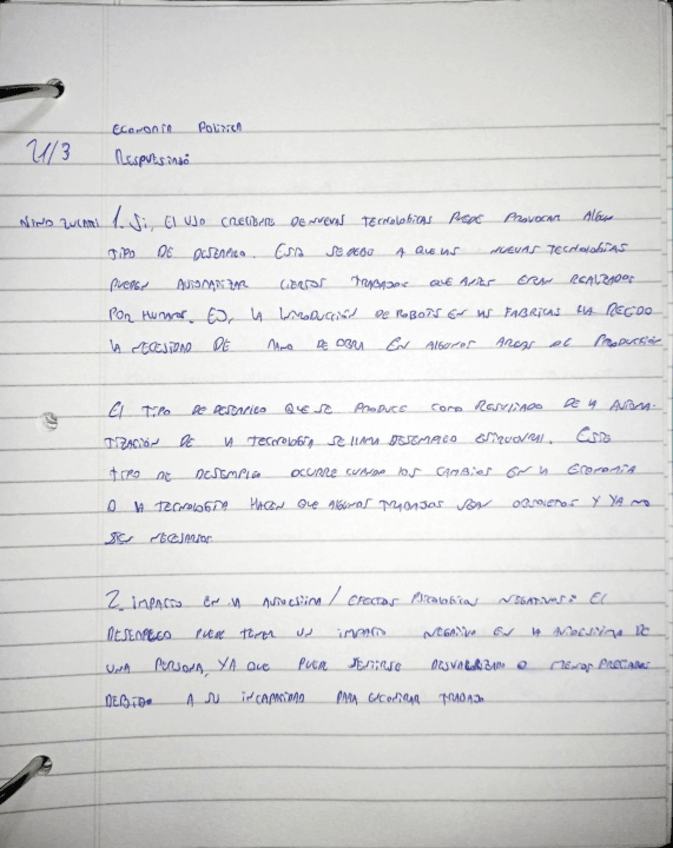 Economía Política
21/3
Respuestas
Nino 1. Si, El uso creciente de nuevas tecnologicas puede provocar algun
tipo de desempleo. Esto se debe a que las nuevas tecnologías
pueden automatizar ciertos trabajos que antes eran realizados
por humanos. Ej, la introducción de robots en las fabricas ha
la necesidad de mano de obra en algunos areas de producción
El tipo de desempleo que se produce como resultado de la automa-
tización de la tecnología se llama desempleo estructural. Este
tipo de desempleo ocurre cuando los cambios en la economía
o la tecnología hacen que algunos trabajos sean obsoletos y ya no
sean necesarios
2_ impacto en la autoestima / efectos psicologicos negativos: El
desempleo puede tener un impacto negativo en la autoestima de
una persona, ya que puede sentirse desvalorizado o menospreciado
debido a su incapacidad para encontrar trabajo